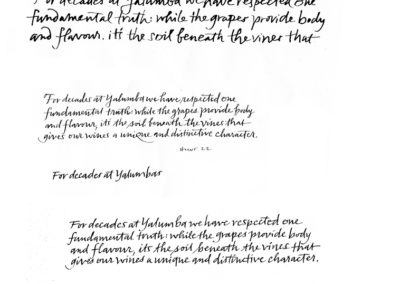 For decades at Yalumba we have respected one
fundamental truth: while the grapes provide body
and flavour. it's the soil beneath the vines that
For decades at Yalumba we have respected one
fundamental truth: while the grapes provide body
and flavour, it's the soil beneath the vines that
gives our wines a unique and distinctive character.
For decades at Yalumbas
For decades at Yalumba we have respected one
fundamental truth: while the grapes provide body
and flavour, its the soil beneath the vines that
gives our wines a unique and distinctive character.